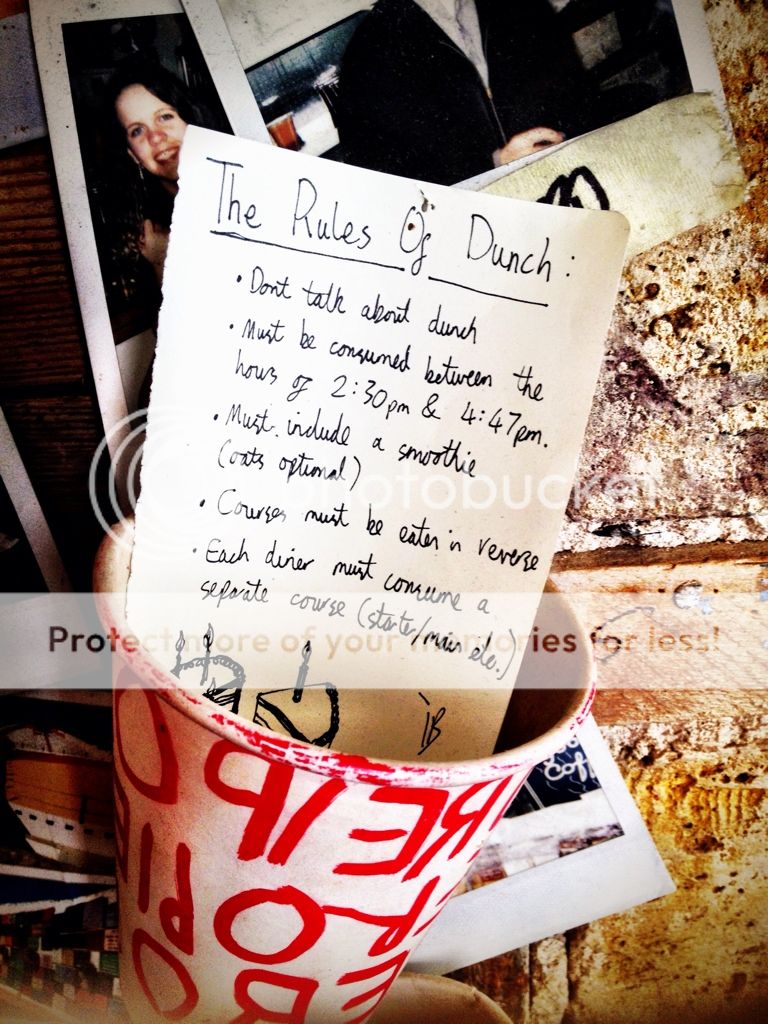 The Rules Of Dunch:
• Dont talk about dunch
• Must be consumed between the
hours of 2:30pm & 4:47pm.
• Must include a smoothie
(oats optional)
• Courses must be eaten in reverse
• Each diner must consume a
separate course (starter/main etc.)
photobucket
Protect more of your memories for less!